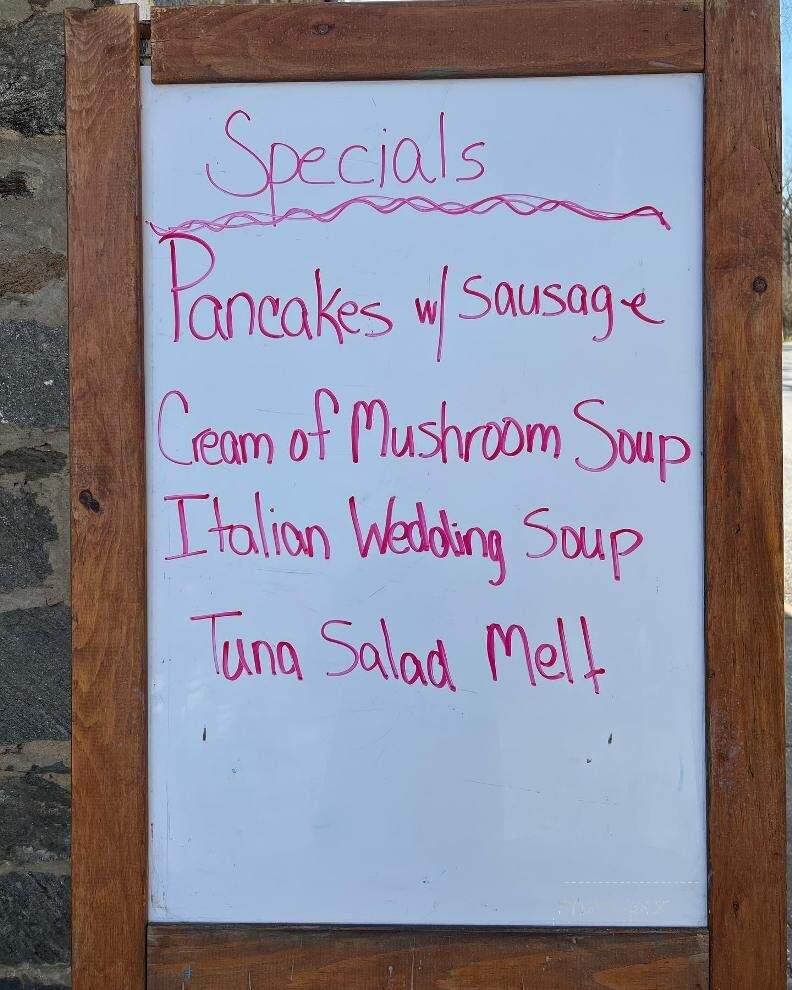 Specials
Pancakes w/ sausage
Cream of Mushroom Soup
Italian Wedding Soup
Tuna Salad Melt